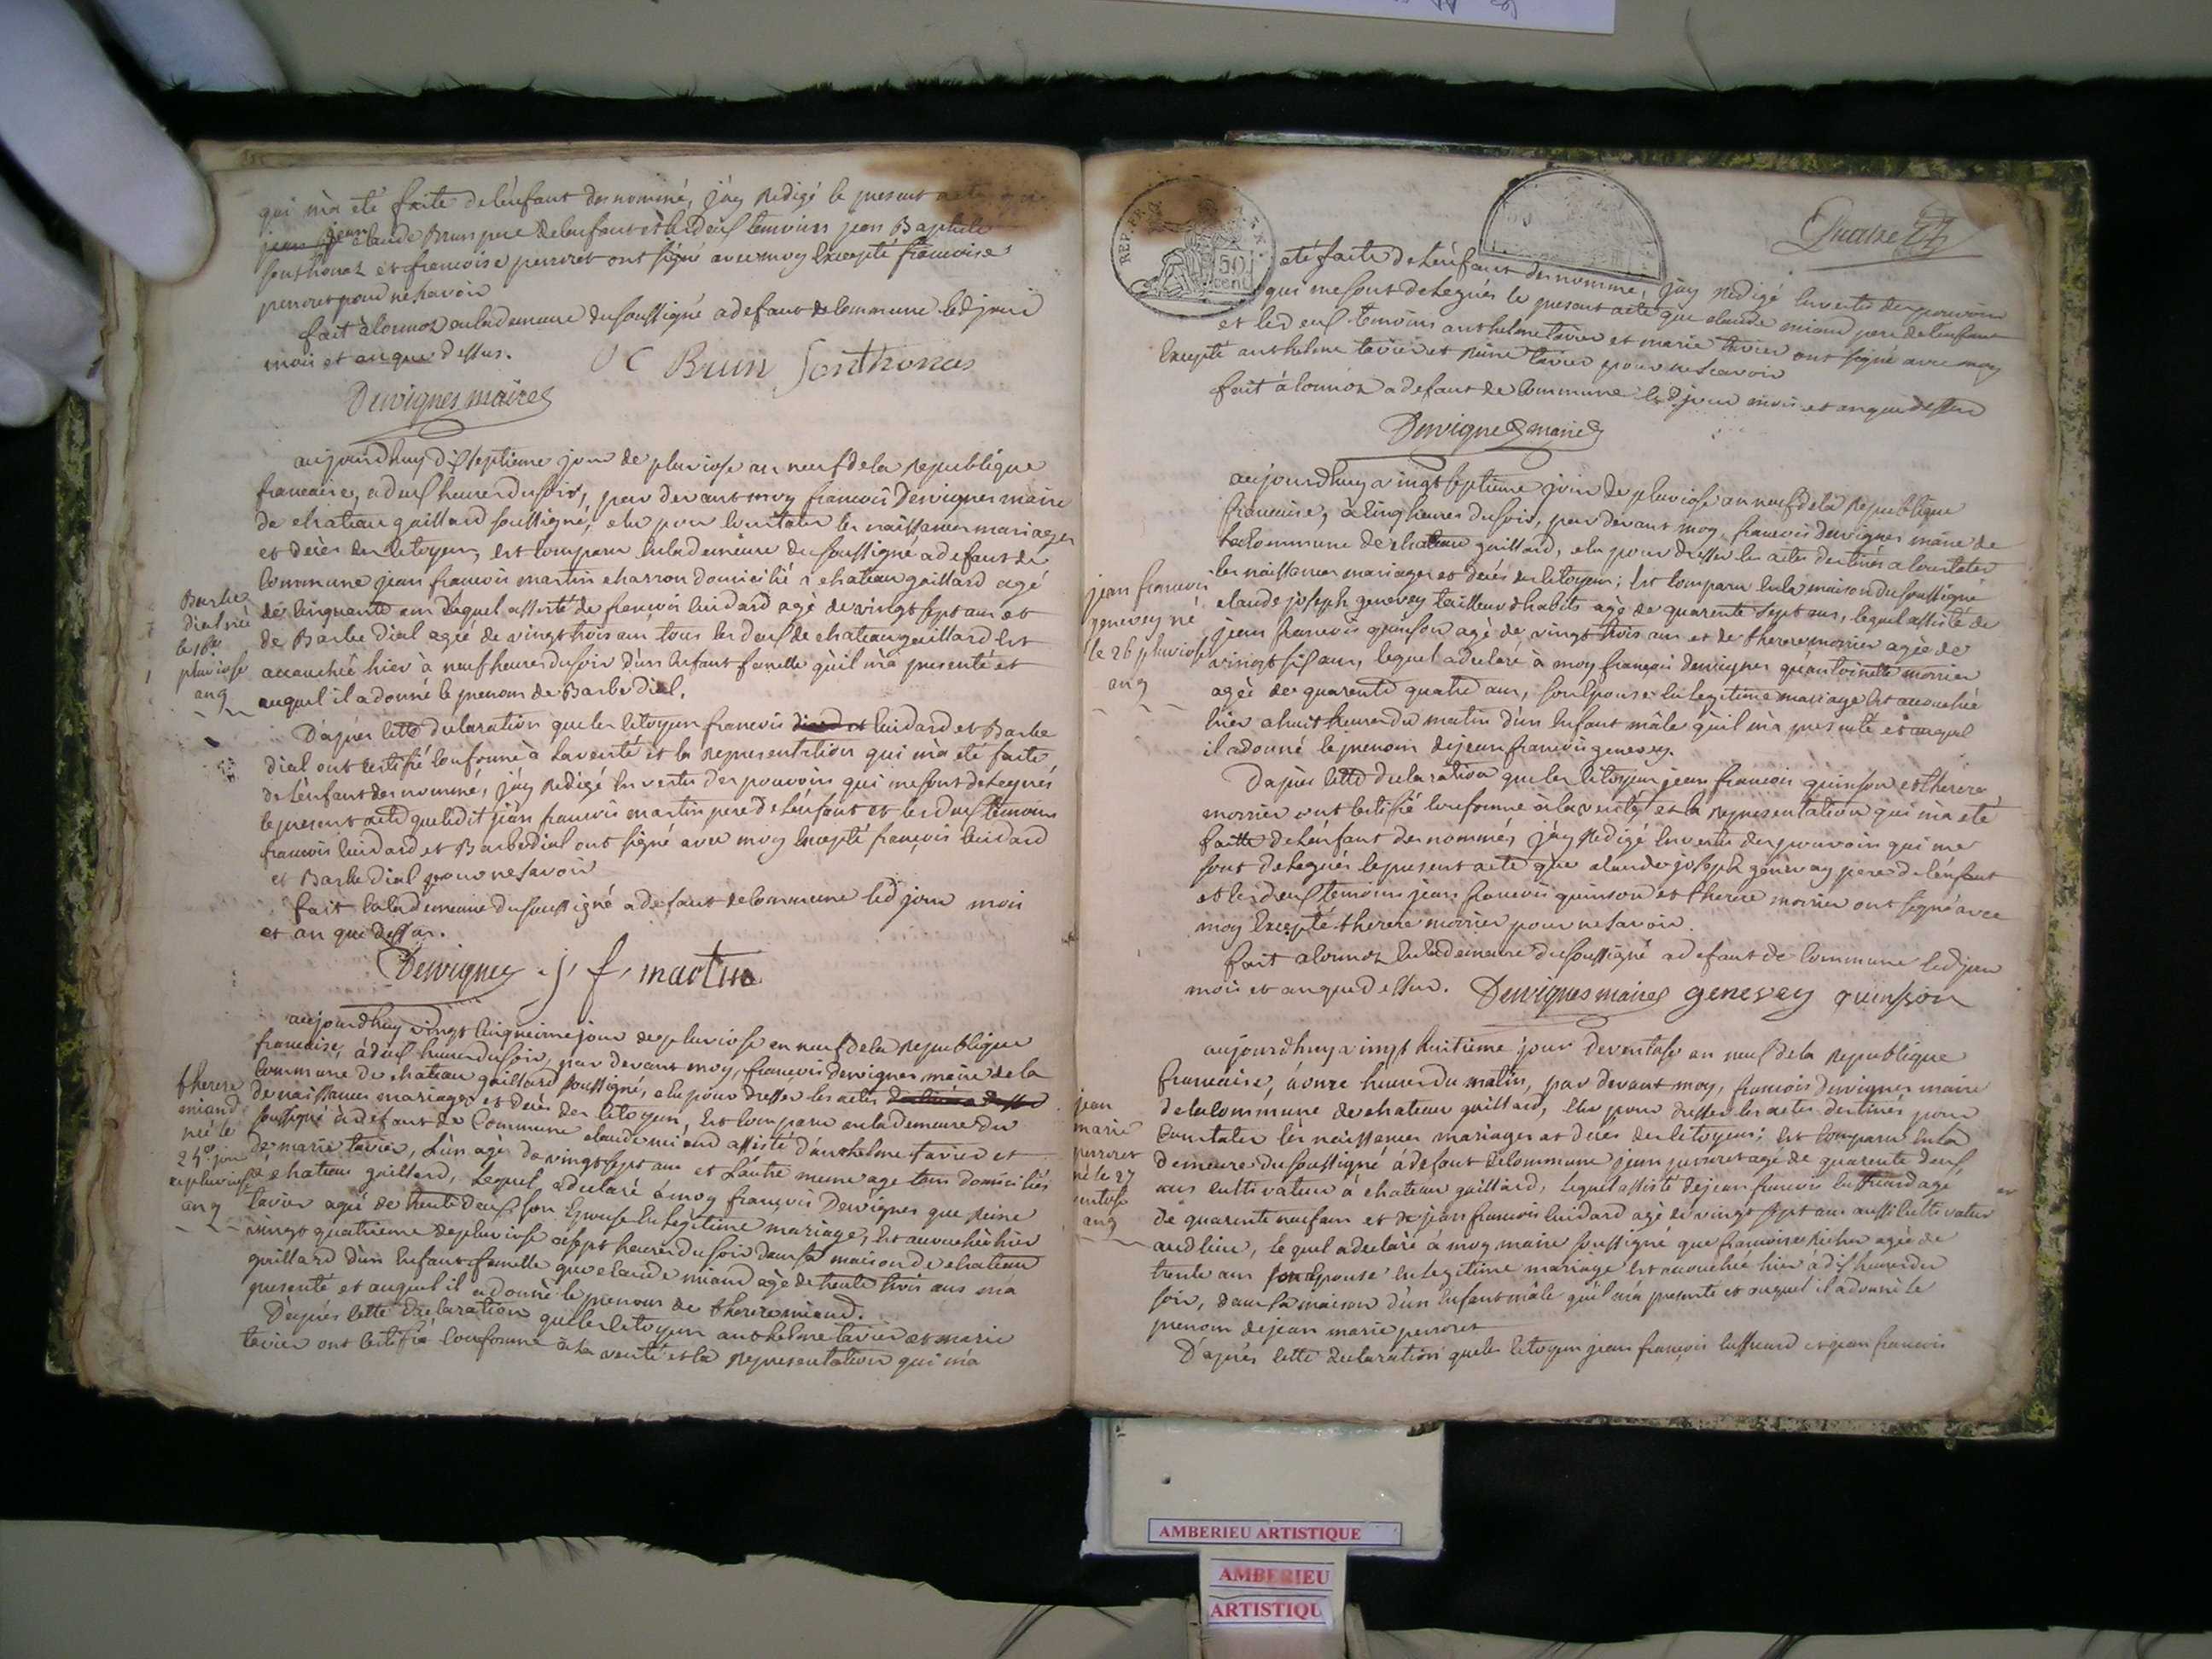 qui m'a eté faite de l'enfant desnommé, j'ay redigé le present acte que
claude Brun pere de lenfant et les deux temoins jean Baptiste
sonthonax et francoise perroret ont signé avec moy Excepté francoise
perroret pour ne savoir
fait à lonnoz en la demeure du soussigné a defaut de commune led jour
mois et an que dessus.
J C Brun Sonthonas
Dervignes maire
aujourdhuy dixseptieme jour de pluviose an neuf de la republique
francaise, a deux heures du soir, par devant moy francois Dervignes maire
de chateau gaillard soussigné, elu pour constater les naissances mariages
et decès des citoyens, est comparu en la demeure du soussigné a defaut de
commune jean francois martin charron domicilié à chateau gaillard agé
de cinquante ans lequel assisté de francois cuidard agé de vingt sept ans et
de Barbe dial agée de vingt trois ans, tous les deux de chateau gaillard est
accouchée hier à neuf heures du soir d'un enfant femelle qu'il m'a presenté et
auquel il a donné le prenom de Barbe dial.
Barbe
dial née
le 16e
pluviose
an 9
D'apres cette declaration que les citoyens francois cuidard et Barbe
dial ont certifié conforme à la verité et la representation qui m'a eté faite
de l'enfant desnommé, j'ay redigé en vertu des pouvoirs qui me sont delegués
le present acte que ledit jean francois martin pere de l'enfant et les deux temoins
francois cuidard et Barbe dial ont signé avec moy excepté françois cuidard
et Barbe dial pour ne savoir
fait en la demeure du soussigné a defaut de commune led jour mois
et an que dessus.
Dervignes j, f, martin
aujourdhuy vingt cinquieme jour de pluviose an neuf de la republique
francaise, à deux heures du soir, par devant moy, francois dervignes maire de la
commune de chateau gaillard soussigné, elu pour dresser les actes
de naissances mariages et decès des citoyens, est comparu en la demeure du
soussigné à defaut de commune claude miand assisté d'anthelme tavier et
de marie tavier, l'un agé de vingt sept ans et l'autre meme age tous domiciliés
a chateau gaillard, lequel a declaré à moy françois Dervignes que reine
tavier agée de trente deux son epouse en legitime mariage, est accouchée hier
vingt quatrieme de pluviose a sept heures du soir dans sa maison de chateau
gaillard d'un enfant femelle que claude miand agé de trente trois ans m'a
presenté et auquel il a donné le prenom de therese miand.
therese
miand
née le
24e jour
de pluviose
an 9
D'apres cette declaration que les citoyens anthelme tavier et marie
tavier ont certifié conforme à la verité et la representation qui m'a
REP. FRA.
50
cent
Quatre
eté faite de l'enfant desnommé, j'ay redigé en vertu des pouvoirs
qui me sont delegués le present acte que claude miand pere de l'enfant
et les deux temoins anthelme tavier et marie tavier ont signé avec moy
Excepté anthelme tavier et reine tavier pour ne scavoir
fait à lonnoz a defaut de commune led jour mois et an que dessus
Dervignes maire
aujourdhuy vingt septieme jour de pluviose an neuf de la republique
francaise, à cinq heures du soir, par devant moy, francois dervignes maire de
la commune de chateau gaillard, elu pour dresser les actes destinés a constater
les naissances mariages et decés des citoyens; est comparu en la maison du soussigné
claude joseph genevey tailleur d'habits agé de quarente sept ans, lequel assisté de
jean francois quinson agé de vingt trois ans et de therese morrier agée de
vingt six ans, lequel a declaré à moy françois dervignes qu'antoinette morrier
agée de quarente quatre ans, son epouse en legitime mariage est accouchée
hier a huit heures du matin d'un enfant mâle qu'il m'a presenté et auquel
il a donné le prenom de jean francois genevey.
jean francois
genevey né
le 26 pluviose
an 9
Dapres cette declaration que les citoyens jean francois quinson et therese
morrier ont certifié conforme à la verité et la representation qui m'a eté
faitte de l'enfant desnommés j'ay redigé en vertu des pouvoirs qui me
sont delegués le present acte que claude joseph genevay pere de l'enfant
et les deux temoins jean francois quinson et therese morrier ont signé avec
moy excepté therese morrier pour ne savoir.
fait a lonnoz en la demeure du soussigné a defaut de commune led jour
mois et an que dessus. Dervignes maire genevey quinsson
aujourdhuy vingt huitieme jour de ventose an neuf de la republique
francaise, à onze heures du matin, par devant moy, francois dervignes maire
de la commune de chateau gaillard, elu pour dresser les actes destinés pour
constater les naissances mariages et decés des citoyens; est comparu en la
demeure du soussigné à defaut de commune jean perroret agé de quarente deux
ans cultivateur à chateau gaillard, lequel assisté de jean francois agé
de quarente neuf ans et de jean francois cuidard agé de vingt sept ans aussi cultivateur
aud lieu, lequel a declaré à moy maire soussigné que francoise agée de
trente ans son epouse en legitime mariage est accouchée hier à dix heures du
soir, dans sa maison d'un enfant mâle qu'il m'a presenté et auquel il a donné le
prenom de jean marie perroret
jean
marie
perroret
né le 27
ventose
an 9
D'apres cette declaration que les citoyens jean françois et jean francois
AMBERIEU ARTISTIQUE
AMBERIEU
ARTISTIQU